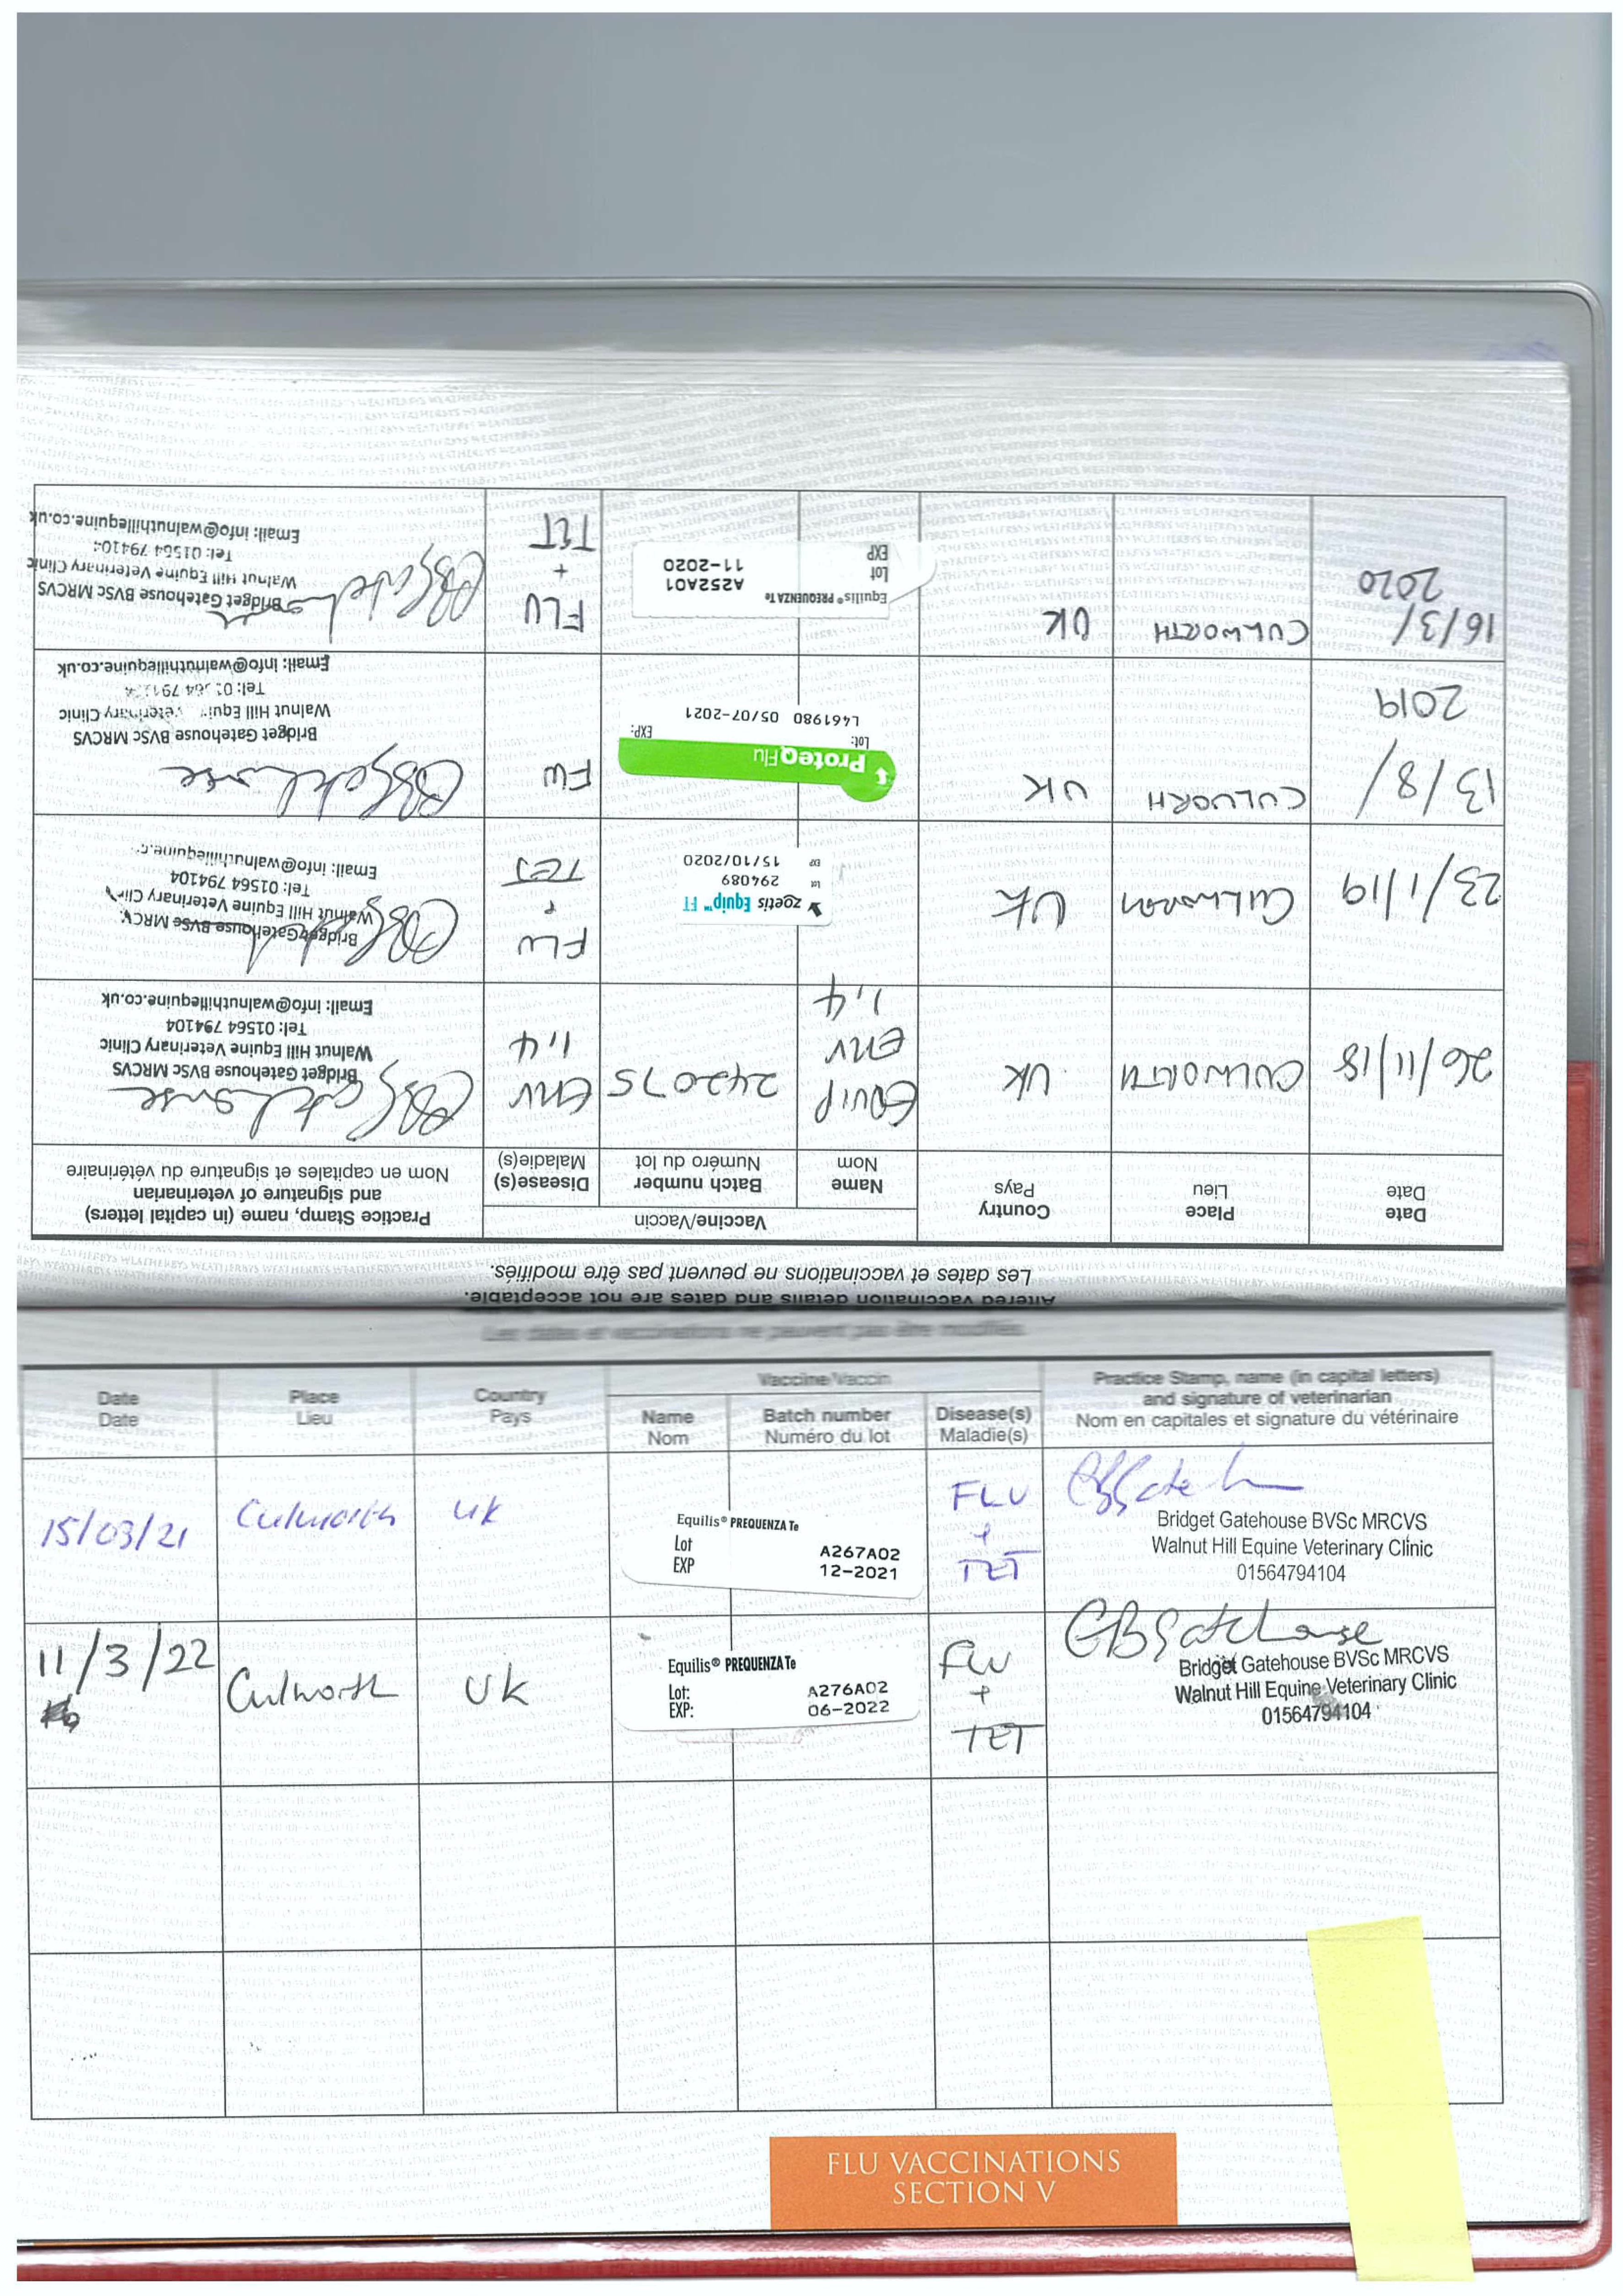 Altered vaccination details and dates are not acceptable.
Les dates et vaccinations ne peuvent pas être modifiés.
Date
Date
Place
Lieu
Country
Pays
Vaccine/Vaccin
Name
Nom
Batch number
Numéro du lot
Disease(s)
Maladie(s)
Practice Stamp, name (in capital letters)
and signature of veterinarian
Nom en capitales et signature du vétérinaire
26/11/18
CULWORTH
UK
EQUIP
EHV
1,4
242075
EHV
1,4
Bridget Gatehouse BVSc MRCVS
Walnut Hill Equine Veterinary Clinic
Tel: 01564 794104
Email: info@walnuthillequine.co.uk
23/1/19
CULWORTH
UK
zoetis Equip™ FT
Lot 294089
EXP 15/10/2020
FLU
+
TET
Bridget Gatehouse BVSc MRCV
Walnut Hill Equine Veterinary Clin
Tel: 01564 794104
Email: info@walnuthillequine.c
13/8/
2019
CULWORH
UK
ProteqFlu
Lot: EXP:
L461980 05/07-2021
FLU
Bridget Gatehouse BVSc MRCVS
Walnut Hill Equi Veterinary Clinic
Email: info@walnuthillequine.co.uk
16/3/
2020
CULWORTH
UK
Equilis® PREQUENZA Te
Lot A252A01
EXP 11-2020
FLU
+
TET
Bridget Gatehouse BVSc MRCVS
Walnut Hill Equine Veterinary Clinic
Tel: 01564 794104
Email: info@walnuthillequine.co.uk
Les dates et vaccinations ne peuvent pas être modifiés.
Date
Date
Place
Lieu
Country
Pays
Vaccine/Vaccin
Name
Nom
Batch number
Numéro du lot
Disease(s)
Maladie(s)
Practice Stamp, name (in capital letters)
and signature of veterinarian
Nom en capitales et signature du vétérinaire
15/03/21
Culworth
UK
Equilis® PREQUENZA Te
Lot A267A02
EXP 12-2021
FLU
+
TET
Bridget Gatehouse BVSc MRCVS
Walnut Hill Equine Veterinary Clinic
01564794104
11/3/22
Culworth
UK
Equilis® PREQUENZA Te
Lot: A276A02
EXP: 06-2022
FLU
+
TET
Bridget Gatehouse BVSc MRCVS
Walnut Hill Equine Veterinary Clinic
01564794104
FLU VACCINATIONS
SECTION V